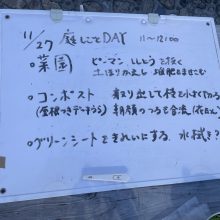 11/27 庭しごとDAY 11〜12:00
○菜園 ピーマン ししとうを抜く
土ほりかえし 堆肥をまぜこむ
○コンポスト 掘り出して枝を小さくわける
(屋根つきデッキう5) 朝顔のつるを合流
○グリーンシートをきれいにする。水拭き?